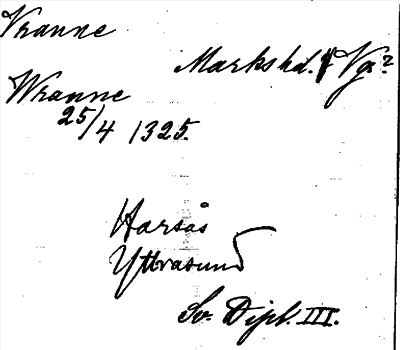 Vranne
Markshd. Vg?
Wranne
25/4 1325.
Harsås
Yttrasund
Sv. Dipl. III.